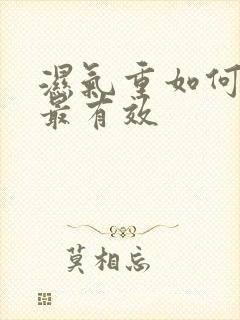 濕氣重如何
最有效
莫相忘